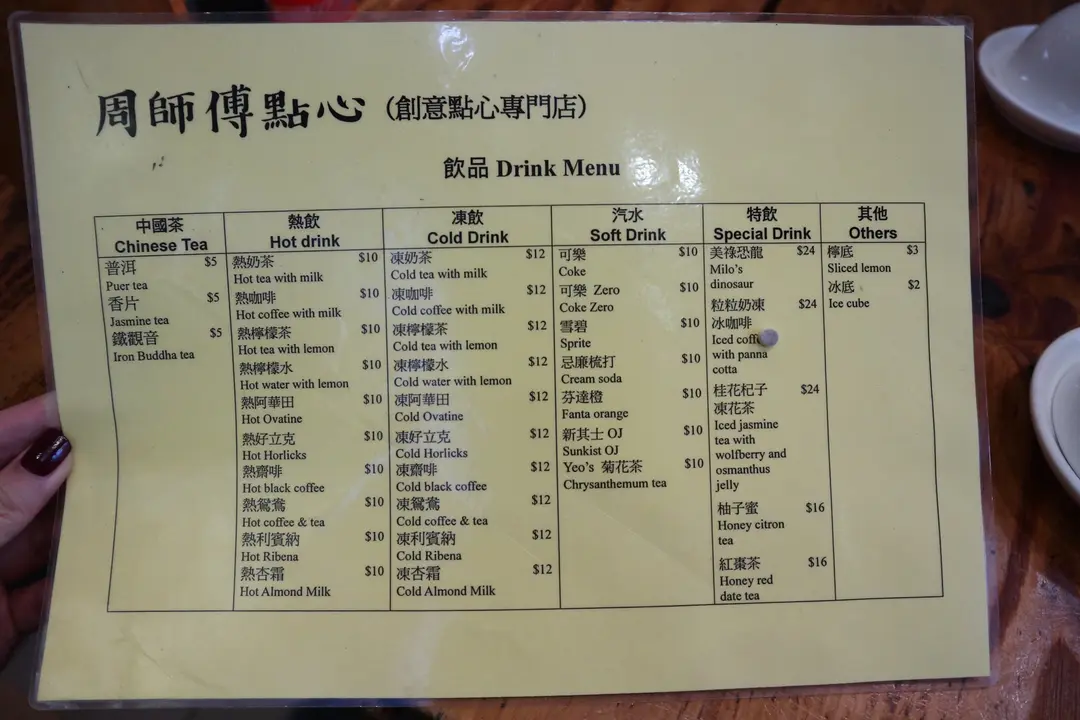 周師傅點心（創意點心專門店）
飲品 Drink Menu
中國茶
Chinese Tea
普洱 $5
Puer tea
香片 $5
Jasmine tea
鐵觀音 $5
Iron Buddha tea
熱飲
Hot drink
熱奶茶 $10
Hot tea with milk
熱咖啡 $10
Hot coffee with milk
熱檸檬茶 $10
Hot tea with lemon
熱檸檬水 $10
Hot water with lemon
熱阿華田 $10
Hot Ovatine
熱好立克 $10
Hot Horlicks
熱齋啡 $10
Hot black coffee
熱鴛鴦 $10
Hot coffee & tea
熱利賓納 $10
Hot Ribena
熱杏霜 $10
Hot Almond Milk
凍飲
Cold Drink
凍奶茶 $12
Cold tea with milk
凍咖啡 $12
Cold coffee with milk
凍檸檬茶 $12
Cold tea with lemon
凍檸檬水 $12
Cold water with lemon
凍阿華田 $12
Cold Ovatine
凍好立克 $12
Cold Horlicks
凍齋啡 $12
Cold black coffee
凍鴛鴦 $12
Cold coffee & tea
凍利賓納 $12
Cold Ribena
凍杏霜 $12
Cold Almond Milk
汽水
Soft Drink
可樂 $10
Coke
可樂 Zero $10
Coke Zero
雪碧 $10
Sprite
忌廉梳打 $10
Cream soda
芬達橙 $10
Fanta orange
新其士 OJ $10
Sunkist OJ
Yeo's 菊花茶 $10
Chrysanthemum tea
特飲
Special Drink
美祿恐龍 $24
Milo's
dinosaur
粒粒奶凍 $24
冰咖啡
Iced coffe
with panna
cotta
桂花杞子 $24
凍花茶
Iced jasmine
tea with
wolfberry and
osmanthus
jelly
柚子蜜 $16
Honey citron
tea
紅棗茶 $16
Honey red
date tea
其他
Others
檸底 $3
Sliced lemon
冰底 $2
Ice cube